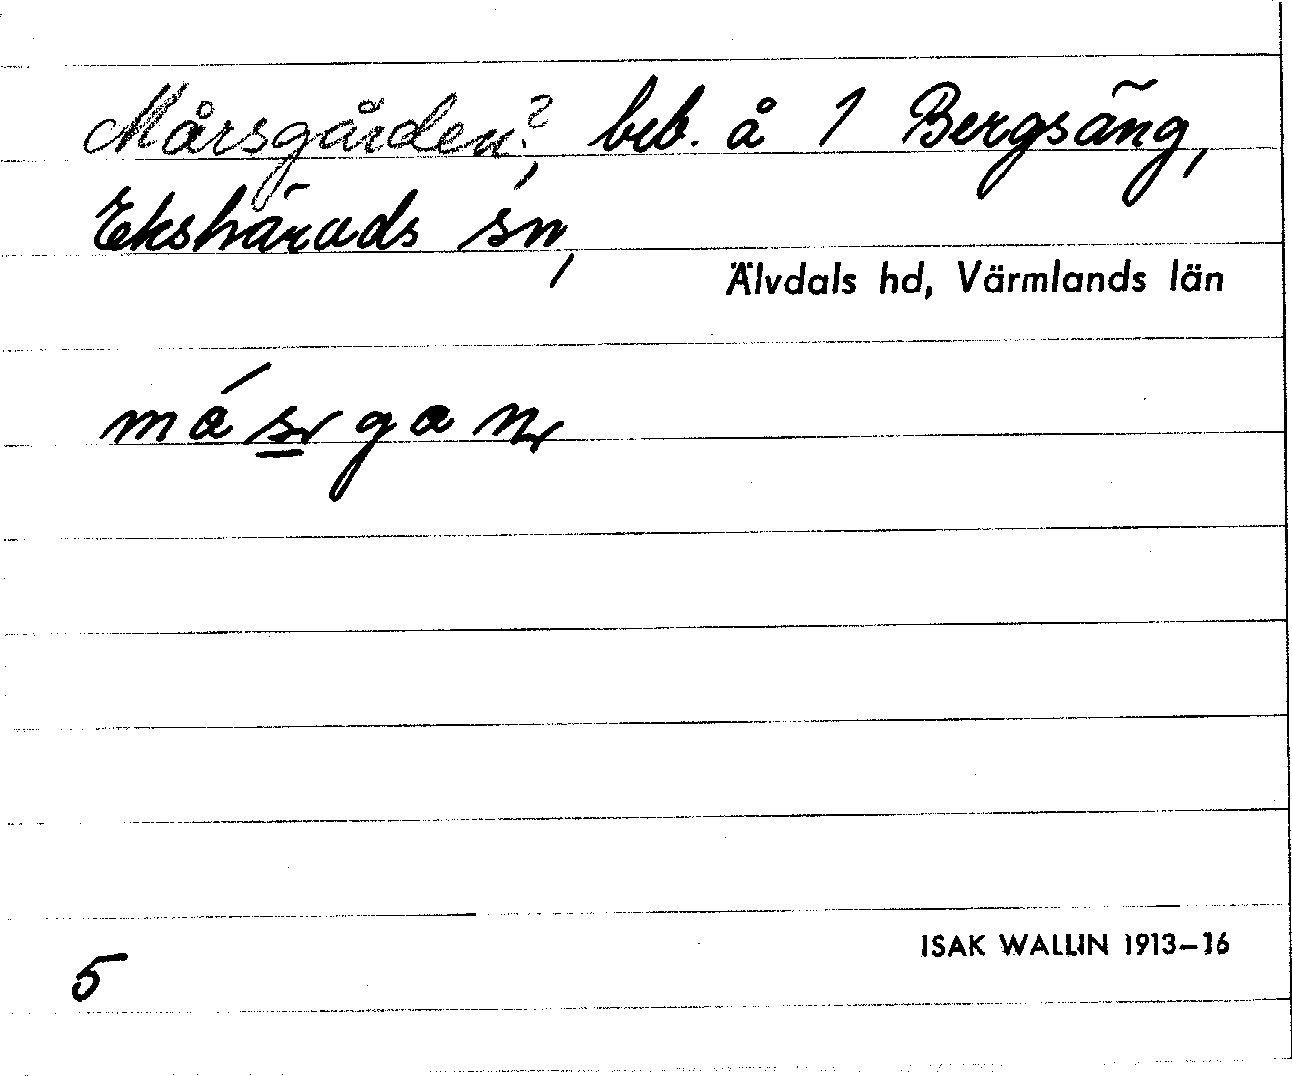 Mårsgården?, beb. å 1 Bergsäng,
Ekshärads sn,
Älvdals hd, Värmlands län
må´s̲rganr
ISAK WALLIN 1913–16
5